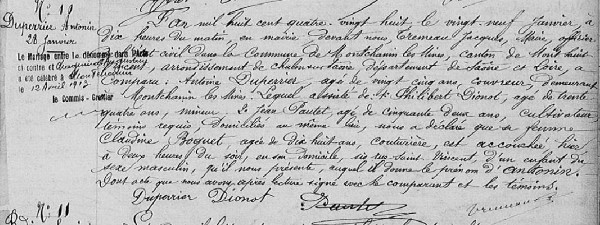 N° 11
Duperrier Antonin
28 Janvier
Le Mariage entre le dénommé dans l'Acte
ci-contre et
a été célébré à
le 12 Avril 1913
Le Commis-Greffier
L'an mil huit cent quatre vingt huit le vingt neuf Janvier, à
dix heures du matin, en mairie devant nous Tremeau Jacques, Maire, officier
état civil dans la Commune de Montchanin les Mines, canton de Mont
arrondissement de Chalon sur Saône, département de Saône et Loire, a
comparu Antoine Duperrier, agé de vingt cinq ans, couvreur, demeurant
Montchanin les Mines. Lequel assisté de St Philibert Dionot, agé de trente
quatre ans, mineur. Et Jean Pautet, agé de cinquante deux ans, cultivateur
témoins requis, domiciliés au même lieu, nous a déclaré que sa femme
Claudine Boquet, agée de dix huit ans, couturière, est accouchée, hier
à deux heures du soir, en son domicile, sis rue Saint Vincent, d'un enfant du
sexe masculin, qu'il nous présente, auquel il donne le prénom d'Antonin.
Dont acte que nous avons après lecture signé avec le comparant et les témoins.
Duperrier Dionot Pautet
N° 11